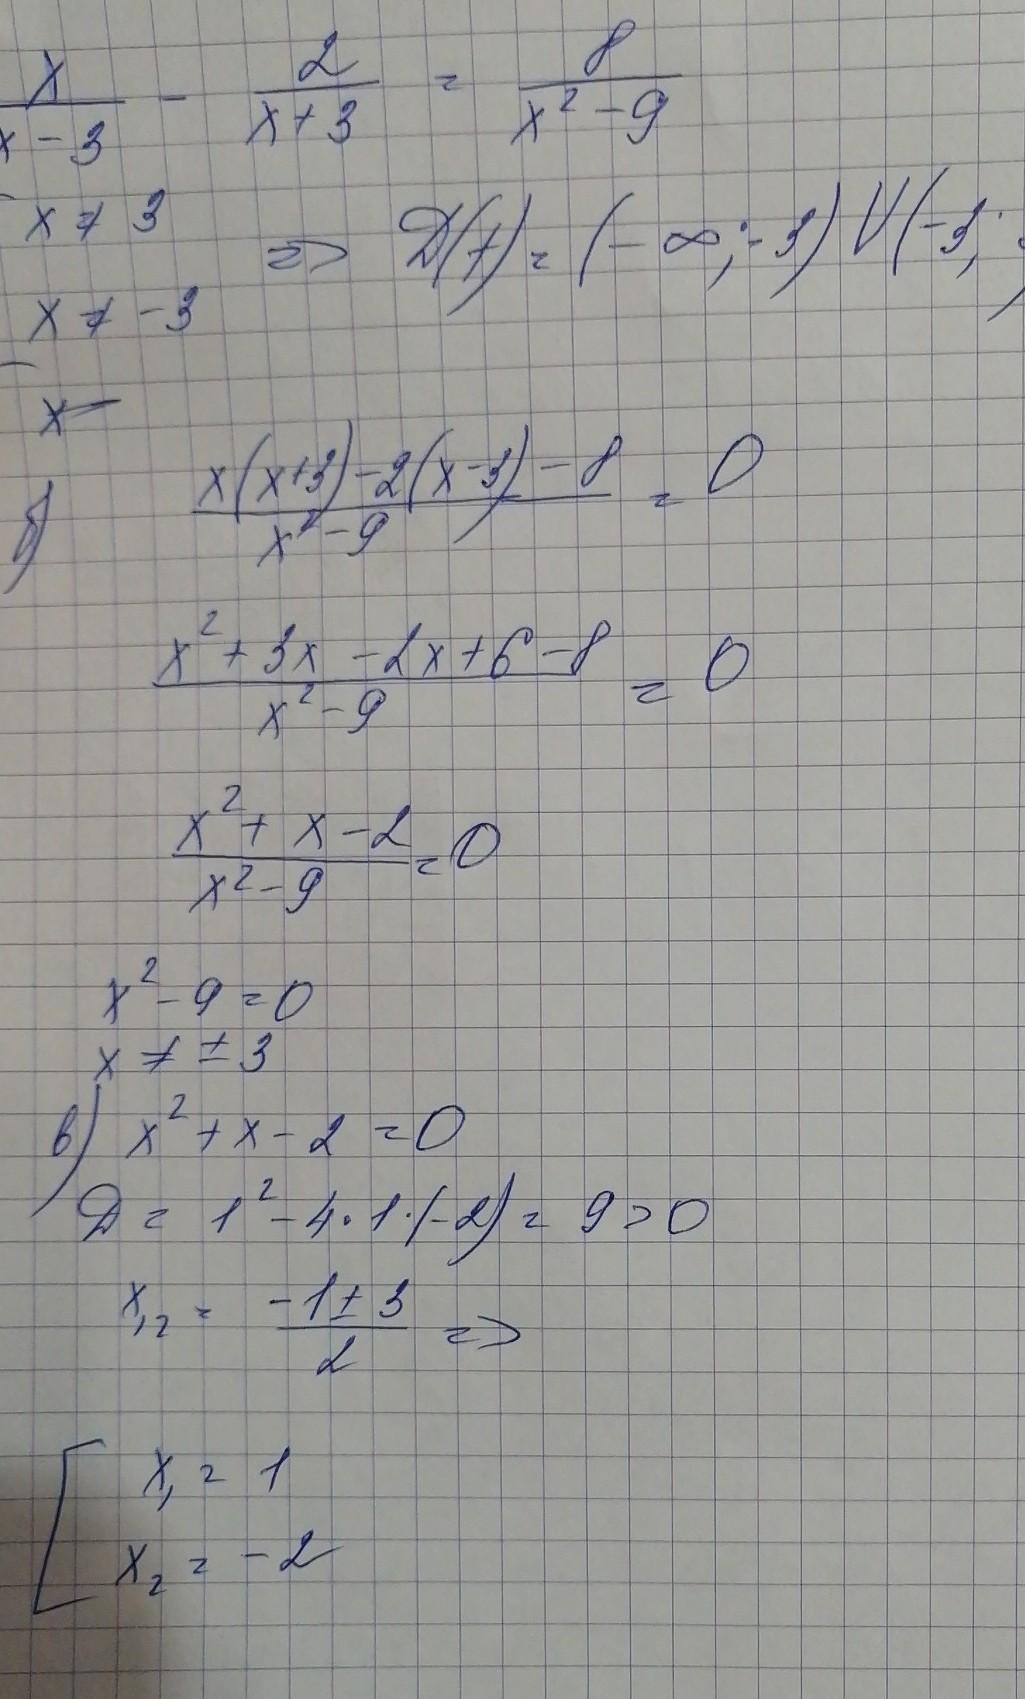 x/(x - 3) - 2/(x + 3) = 8/(x² - 9)
x ≠ 3
=> D(f) = (- ∞; -3) U (-3;
x ≠ -3
x
б) (x(x+3) - 2(x-3) - 8)/(x² - 9) = 0
(x² + 3x - 2x + 6 - 8)/(x² - 9) = 0
(x² + x - 2)/(x² - 9) = 0
x² - 9 = 0
x ≠ ± 3
в) x² + x - 2 = 0
D = 1² - 4 · 1 · (-2) = 9 > 0
x,₂ = (-1 ± 3)/2 =>
x₁ = 1
x₂ = -2